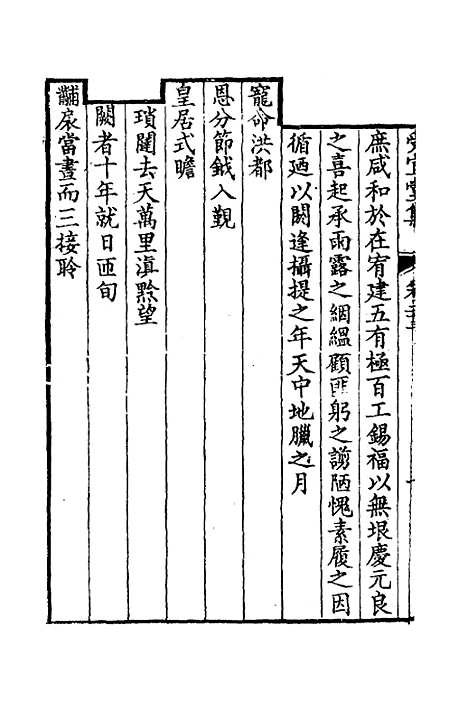 庶咸和於在宥建五有極百工錫福以無垠慶元良
之喜起承雨露之絪縕顧匪躬之謭陋愧素履之因
循廼以閼逢攝提之年天中地臘之月
寵命洪都
恩分節鉞入覲
皇居式瞻
瑣闥去天萬里滇黔望
闕者十年就日匝旬
黼扆當晝而三接聆